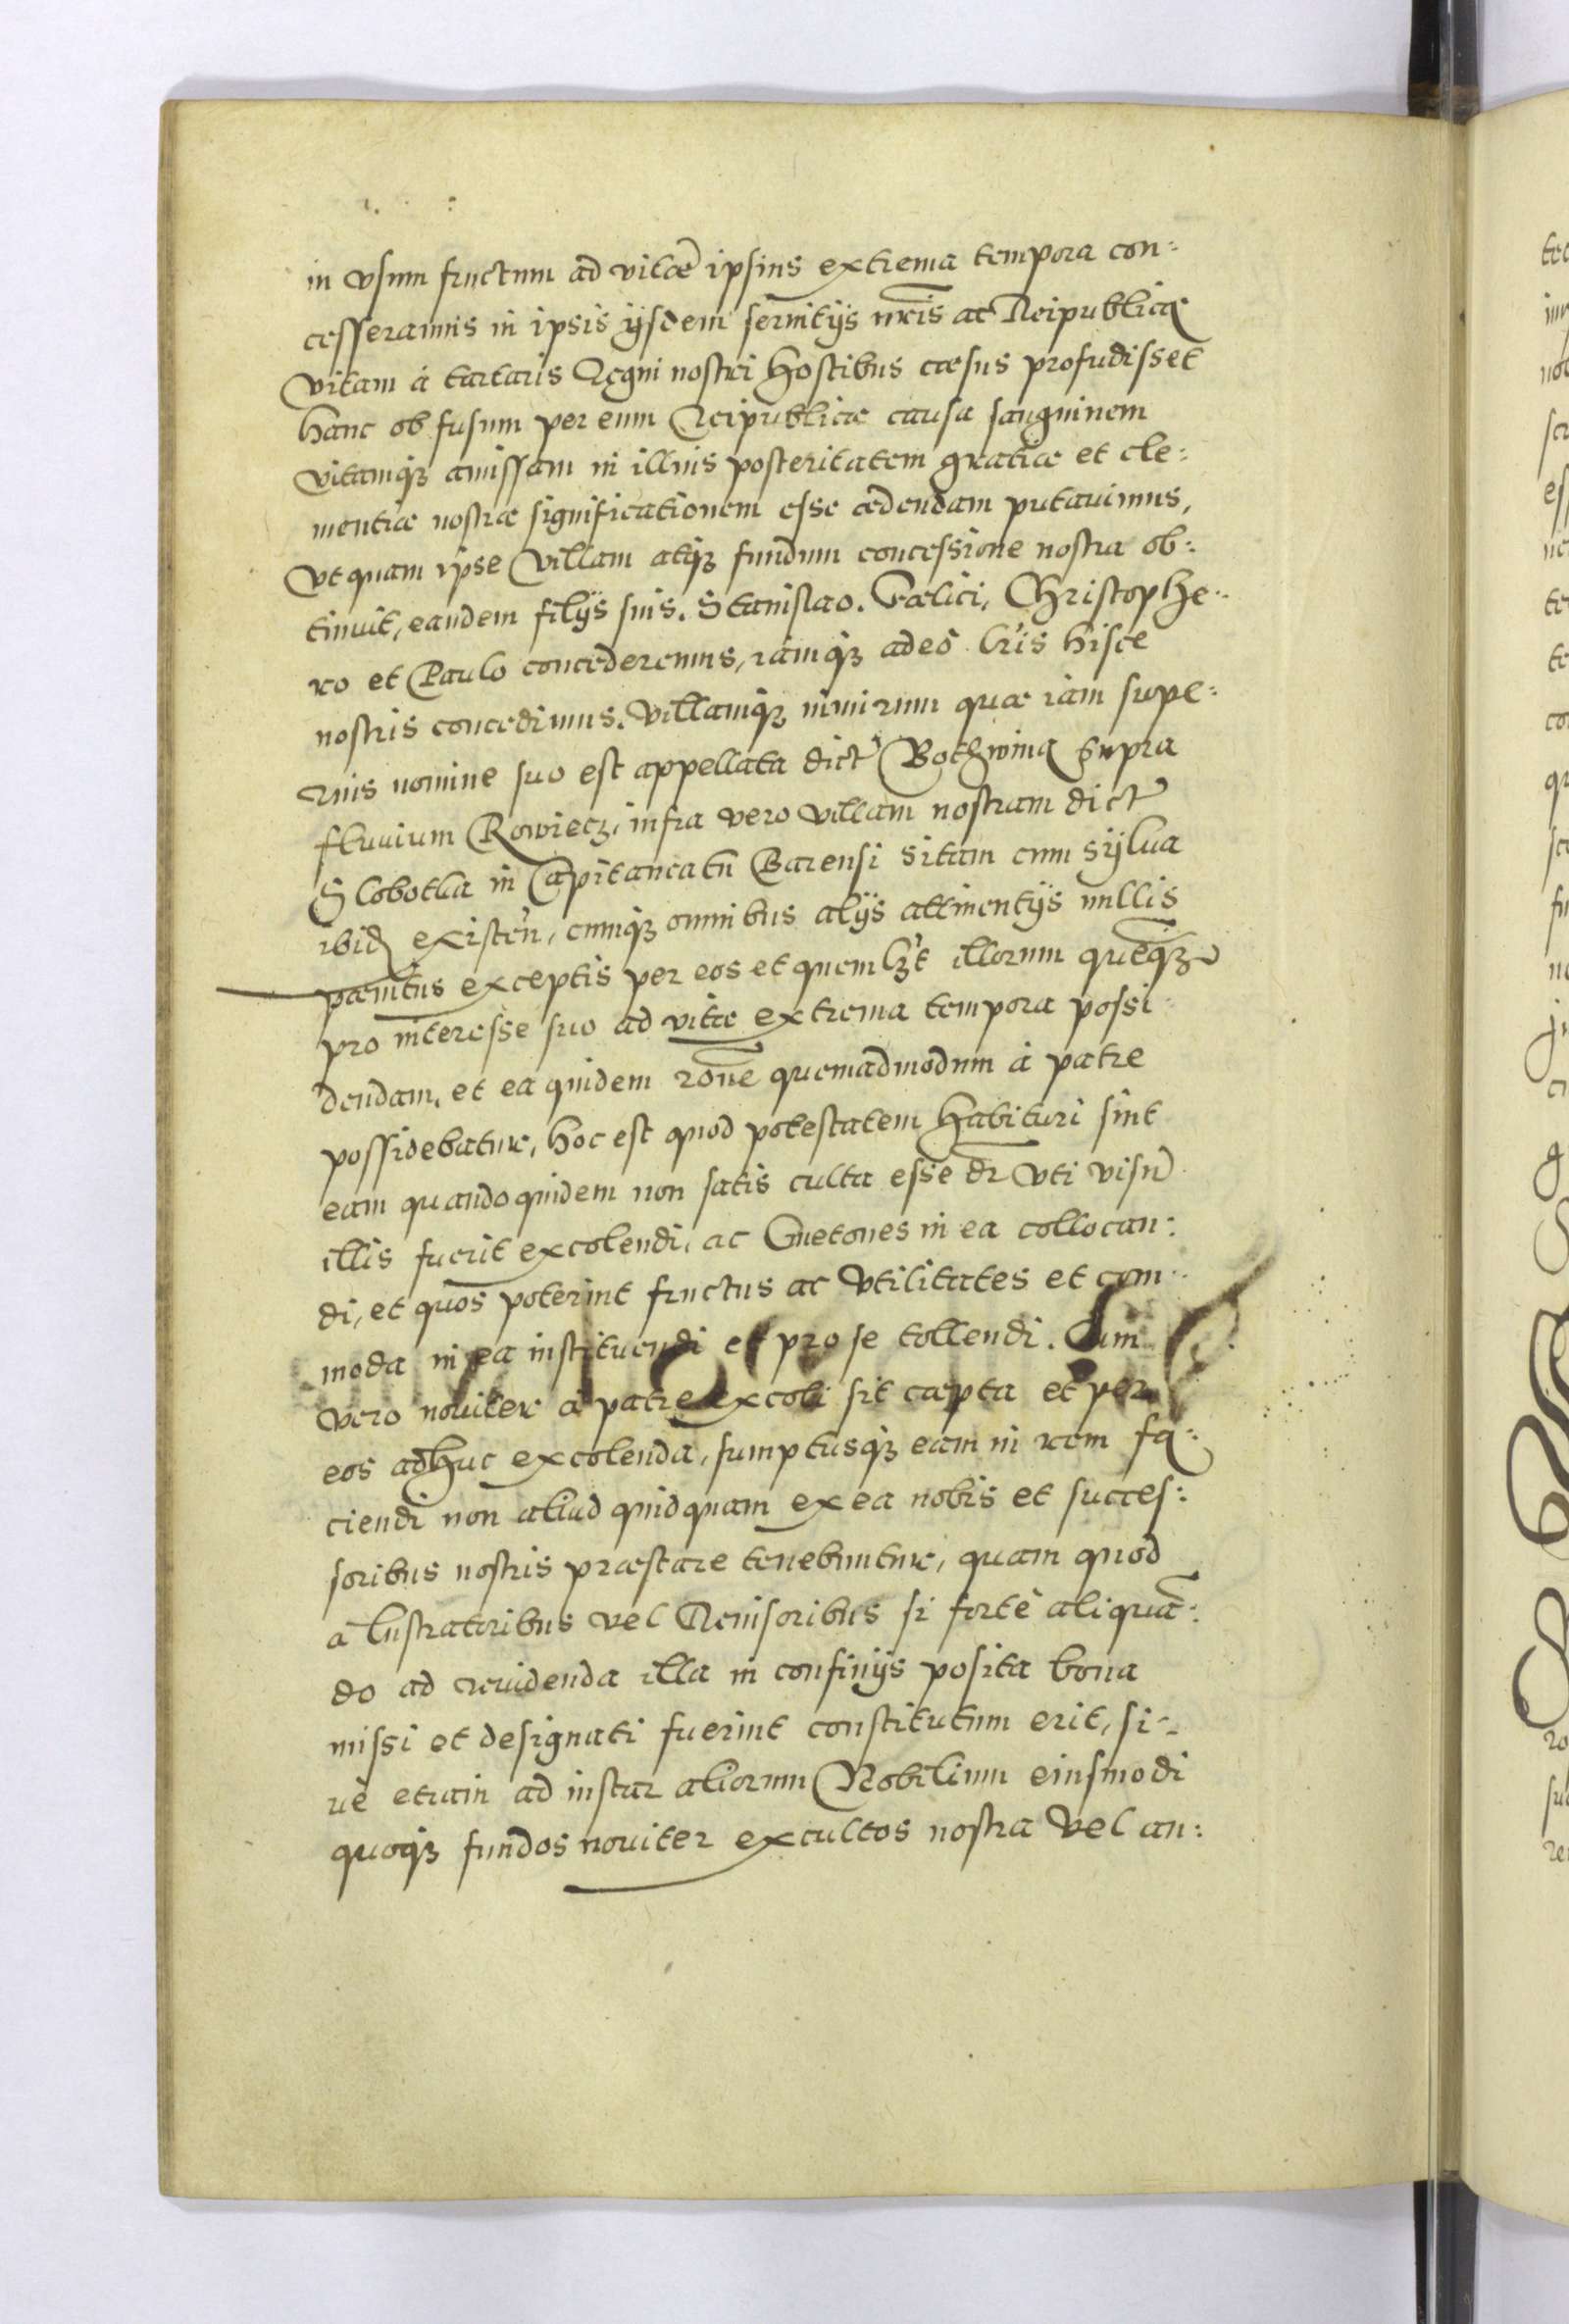 in vsum fructum ad vitæ ipsius extrema tempora con:
cesseramus in ipsis ijsdem seruitijs nrĩs ac Reipublicæ
vitam à tartaris Regni nostri hostibus cæsus profudisset
hanc ob fusum per eum Reipublicæ causa sanguinem
vitamq3 amissam in illius posteritatem gratiæ et cle:
mentiæ nostræ significationem esse ædendam putauimus,
Vt quam ipse villam atq3 fundum concessione nostra ob:
tinuit, eandem filijs suis. Stanislao. Fœlici, Christophe:
ro et Paulo concederemus, iamq3 adeò lr̃is hisce
nostris concedimus. Villamq3 nimirum quæ iam supe:
rius nomine suo est appellata dict' supra
fluuium Rowiecz, infra vero villam nostram dict'
Slobotka in Capitaneatũ Barensi sitam cum sylua
ibid existen̄, cumq3 omnibus alijs attinentijs nullis
pænitus exceptis per eos et quemlz't illorum quẽq3
pro interesse suo ad vitæ extrema tempora possi:
dendam, et ea quidem rõne quemadmodum à patre
possidebatur, hoc est quod potestatem habituri sint
eam quandoquidem non satis culta esse dr vti visũ
illis fuerit excolendi, ac Cmetones in ea collocan:
di, et quos poterint fructus ac vtilitates et com:
moda in ea instituendi et pro se tollendi. Cum
vero nouiter à patre excoli sit cæpta et per
eos adhuc excolenda, sumptusq3 eam in rem fa:
ciendi non aliud quidquam ex ea nobis et succes:
soribus nostris præstare tenebuntur, quam quod
a lustratoribus vel Reuisoribus si fortè aliquã:
do ad reuidenda illa in confinijs posita bona
missi et designati fuerint constitutum erit, si:
ue etiam ad instar aliorum Nobilium eiusmodi
quoq3 fundos nouiter excultos nostra vel an: